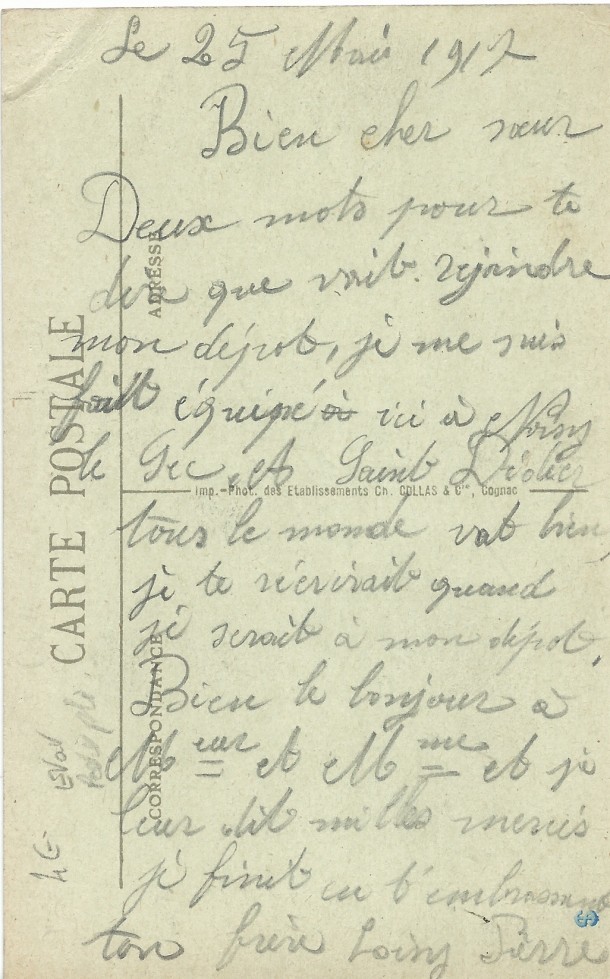 Le 25 Mai 1917
Bien cher sœur
Deux mots pour te
dire que vait rejoindre
mon dépot, je me suis
fait équipé ici à Noisy
le Sec, et Saint Didier
tous le monde vat bien,
je te réécrirait quand
je serait à mon dépot,
Bien le bonjour à
M eur et M me et je
leur dit milles mercis
je finit en t'embrassant
ton frère Loisy Pierre
CARTE POSTALE
ADRESSE
CORRESPONDANCE
Imp.-Phot. des Etablissements Ch. COLLAS & Cie, Cognac
4€